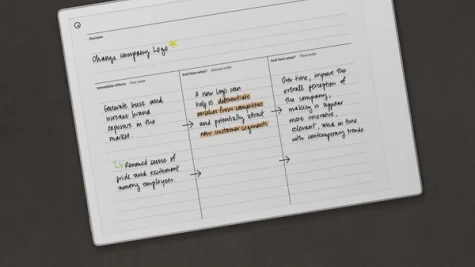 Decision
Change Company Logo
Immediate effects First order
And then what? Second order
And then what? Third order
Generate buzz and
increase brand
exposure in the
market.
Renewed sense of
pride and excitement
among employees
A new logo can
help us differentiate
ourselves from competitors
and potentially attract
new customer segments
Over time, improve the
overall perception of
the company,
making it appear
more innovative,
relevant, and in tune
with contemporary trends